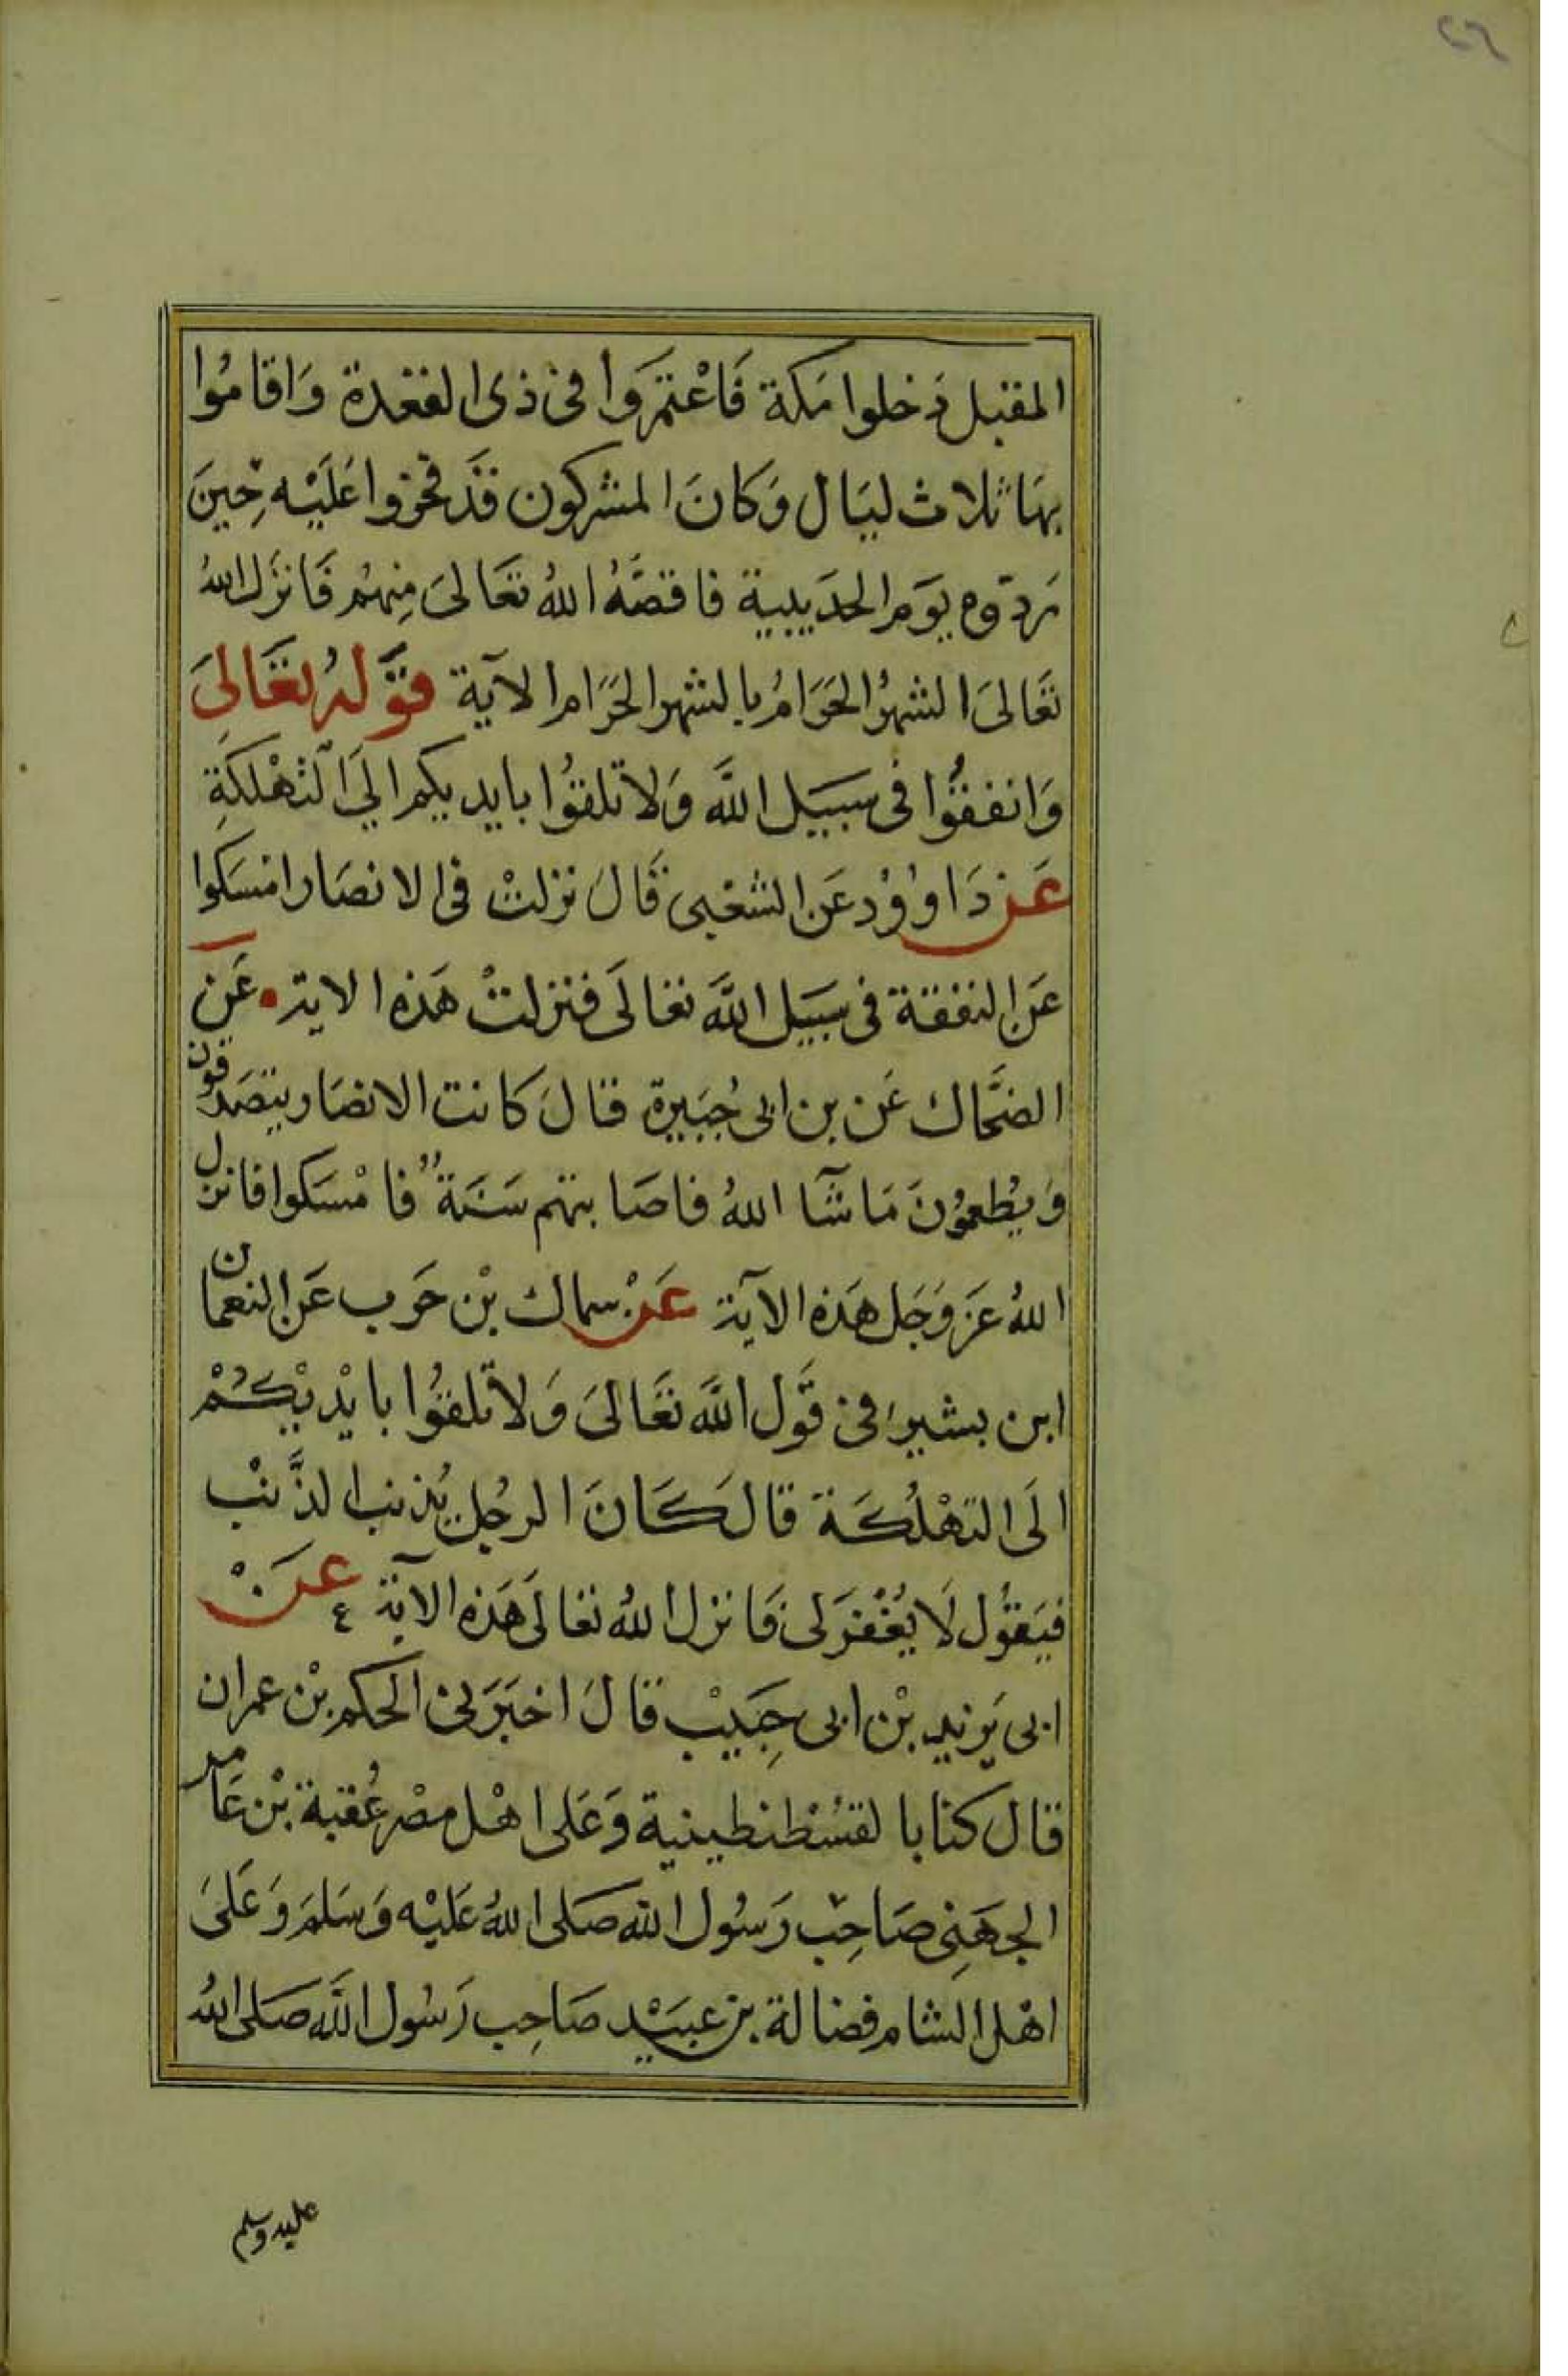 ٢٦
المقبل دَخلوا مَكة فَاعْتمَروا فى ذى القعدة وَاقامُوا
بهَا ثلاث ليَال وَكانَ المشركون قَد فخروا عَليْه حِينَ
رَدّوه يوَم الحدَيبية فاقصَّهُ اللهُ تعَالىَ مِنهُم فَانزَل اللهُ
تعَالىَ الشهرُ الحَرَامُ بالشهر الحَرَام الآية قوَّلهُ تعَالىَ
وَانفقوُا فى سَبيَل اللَّه وَلا تلقوُا بايديكم اليَ التهْلكَةِ
عَن دَاووُد عَن الشعْبى قَالَ نزلتْ فى الانصَار امسَكوا
عَن النفقة فى سَبيَل اللَّه تعَالىَ فنزلتْ هَذه الاية عَن
الضحَّاك عَن بن ابى جُبَيرة قالَ كانت الانصَار يتصَدقون
وَيُطعموُنَ مَا شآ اللهُ فاصَابتهم سَنَةٌ فامْسَكوا فانزل
اللهُ عَز وَجَل هَذه الآية عَنْ سماك بْن حَرب عَن النعمان
ابن بشير فى قوَّل اللَّه تعَالىَ وَلا تلقوُا بايْديْكُمْ
الَى التهْلُكَة قال كَانَ الرجُل يُذنب الذَّنْب
فيَقوُل لَا يُغْفرَ لى فَانزل اللهُ تعَالىَ هَذه الآية عَنْ
ابى يَزيد بْن ابى حِبَيبْ قالَ اخبَرَنى الحَكم بْن عمران
قال كنا با لقسُطنطينية وَعَلى اهْل مصْر عُقبة بْن عَامر
الجهَنِى صَاحِب رَسُول الله صَلى اللهُ عَليْه وَسَلمَ وَعَلىَ
اهْل الشام فضالة بن عبيَد صَاحِب رَسُول اللَّه صَلى اللهُ
عليه وسلم